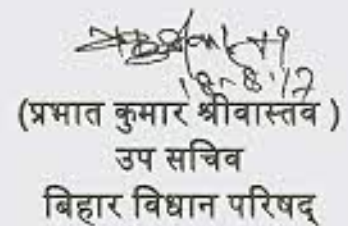 18-8-17
(प्रभात कुमार श्रीवास्तव )
उप सचिव
बिहार विधान परिषद्